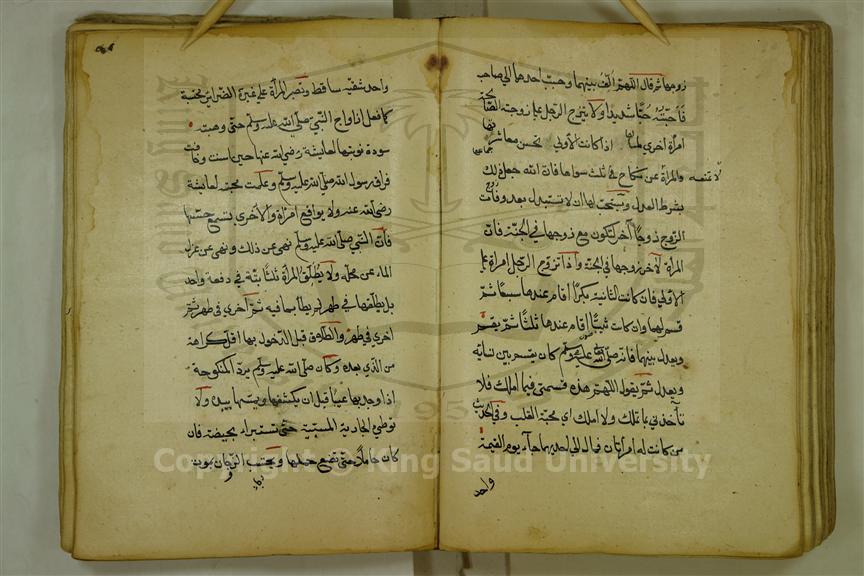 زوجها ثم قال اللهم الف بينهما وحبب احدهما الى صاحبه
فاحبته حبا شديدا ولا يتزوج الرجل على زوجته الصالحة
امرأة اخرى اذا كانت الاولى تحسن معاشرتها
لا تمنعه والمرأة عن نكاح في ثلث سواها فان الله جعل ذلك
بشرط العدل ويستحب لها ان لا تستبدل بعد وفات
الزوج زوجا آخر لتكون مع زوجها في الجنة فان
المرأة لآخر زوجها في الجنة واذا تزوج الرجل امرأة على
الاولى فان كانت الثانية بكرا اقام عندها سبعا ثم
قسم لهما وان كانت ثيبا اقام عندها ثلثا ثم يقسم
ويعدل بينهما فانه صلى الله عليه وسلم كان يقسم بين نسائه
ويعدل ثم يقول اللهم هذه قسمتي فيما املك فلا
تأخذني بما تملك ولا املك اي محبة القلب وفي الحديث
من كانت له امرأتان فمال الى احديهما جاء يوم القيمة
واحد
واحد شقيه ساقط وتصبر المرأة على غيرة الضرائر محتسبة
كما فعل ازواج النبي صلى الله عليه وسلم حتى وهبت
سودة نوبتها لعايشة رضي الله عنها حين اسنت وخافت
فراق رسول الله صلى الله عليه وسلم وعلمت محبته لعايشة
رضي الله عنه ولا يواقع امرأة والاخرى تسمع حسها
فان النبي صلى الله عليه وسلم نهى عن ذلك ونهى عن عزل
الماء عن محله ولا يطلق المرأة ثلثا بتة في دفعة واحد
بل يطلقها في طهر لم يطأها فيه ثم اخرى في طهر ثم
اخرى في طهر والطلاق قبل الدخول بها اقل كراهة
من الذي بعده وكان صلى الله عليه وسلم يرد المنكوحة
اذا وجد بها عيبا قبل ان يكشفها ويمسها بيده ولا
توطئ الجارية المسبية حتى تستبرأ بحيضة فان
كان حاملا حتى تضع حملها ويجتنب
Copyright © King Saud University
1957